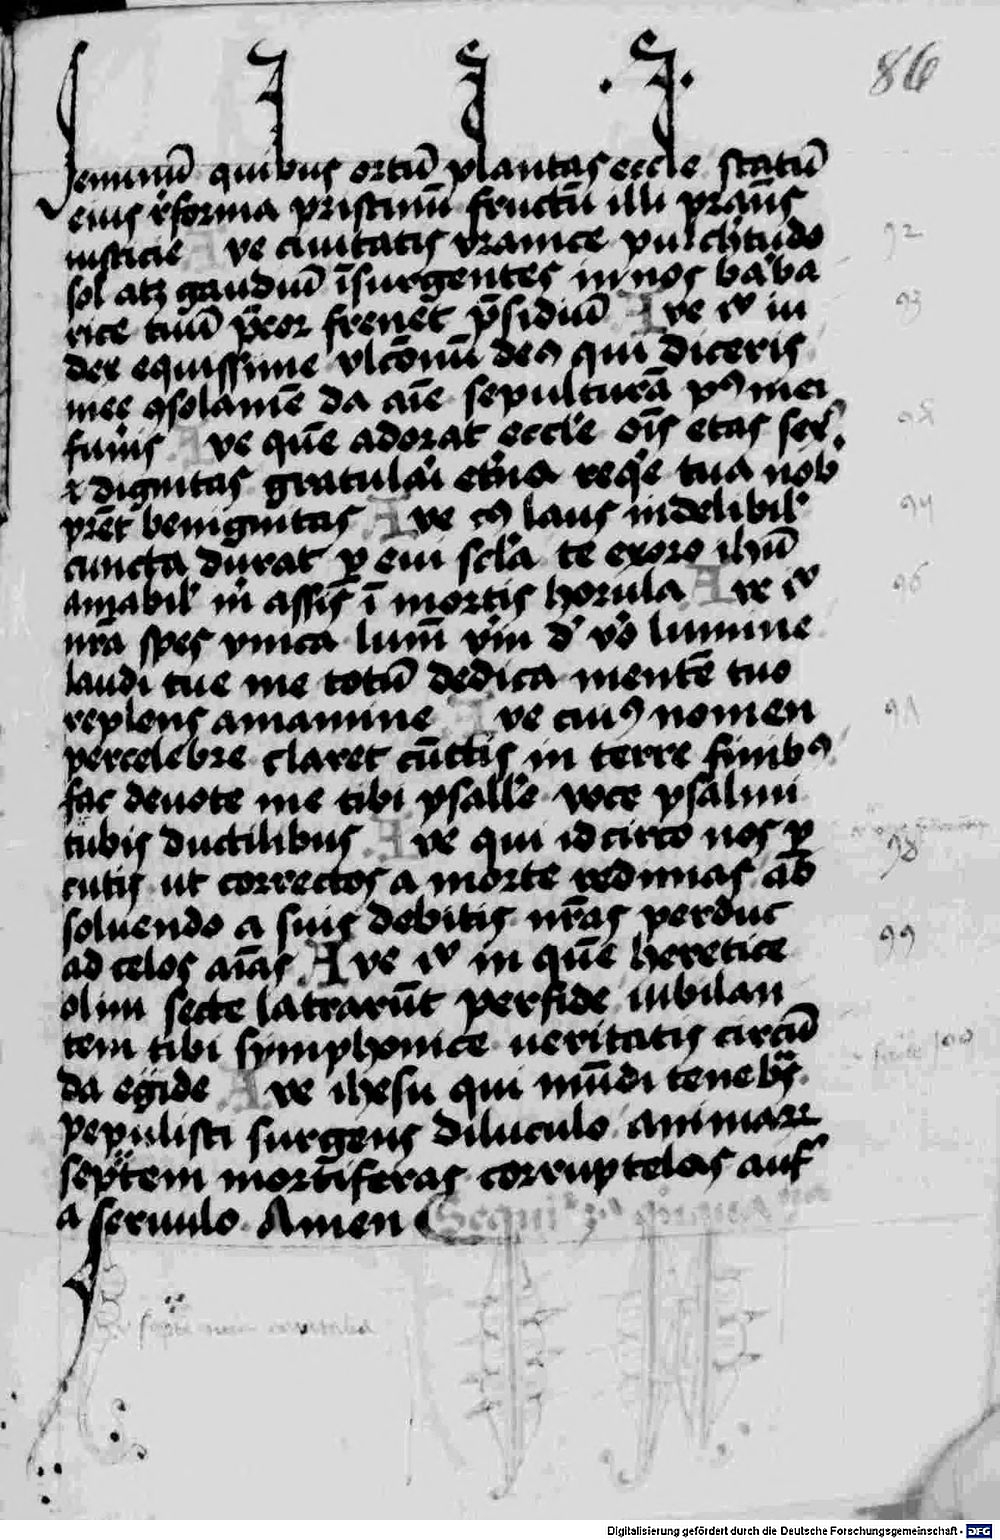 86
geminū quibus ortū plantas eccle statū
eius rͤforma pristinū fructū illi prāns
iusticie Ave ciuitatis vranice pulchͤtudo 92
sol atqꝫ gaudiū īsurgentes in nos baͬba
rice tuū pͤcor frenet pͤsidiū Ave xͮ iu 93
dex equissime vltōnū deꝰ qui diceris
mee ꝯsolamē da aīe sepulturā pꝰ mei
funͤis Ave quē adorat eccͤle oīs etas sexꝰ 95
⁊ dignitas gratulaͥ etͤna reqͥe tua nobͥ
prēt benignitas Ave cꝰ laus indelibilͥ 94
cuncta durat ꝑ eui scͤla te exoro ihū
amabilͥ mͥ assis ī mortis horula Ave xͮ 96
nrā spes vnica lumē vͤm dͤ vͤo lumine
laudi tue me totū dedica mentē tuo
replens amamine Ave cuiꝰ nomen 97
percelebre claret cūctis in terre finibꝰ
fac deuote me tibi psallͤe voce psalmi
tubis ductilibus Ave qui idcirco nos ꝑ 98
cutis ut correctos a morte redimas ab
soluendo a suis debitis nr̄as perduc
ad celos aīas Ave xͮ in quē heretice 99
olim secte latrarūt perfide iubilan
tem tibi symphonice ueritatis circū
da egide Ave ihesu qui mūdi tenebͣs 100
pepulisti surgens diluculo animaꝝ
septem mortiferas corruptelas aufͤ
a seruulo Amen Sequitͬ
Digitalisierung gefördert durch die Deutsche Forschungsgemeinschaft - DFG